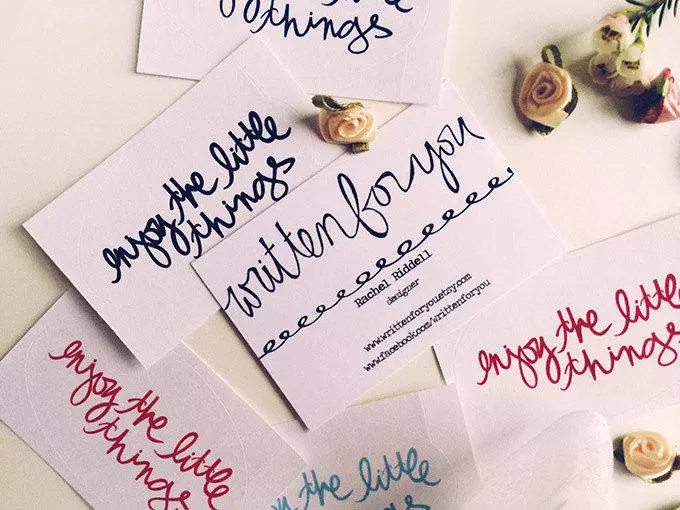 things
enjoy the little
things
written for you
Rachel Riddell
designer
www.writtenforyouetsy.com
www.facebook.com/writtenforyou
enjoy the little
things
enjoy the little
things
enjoy the little